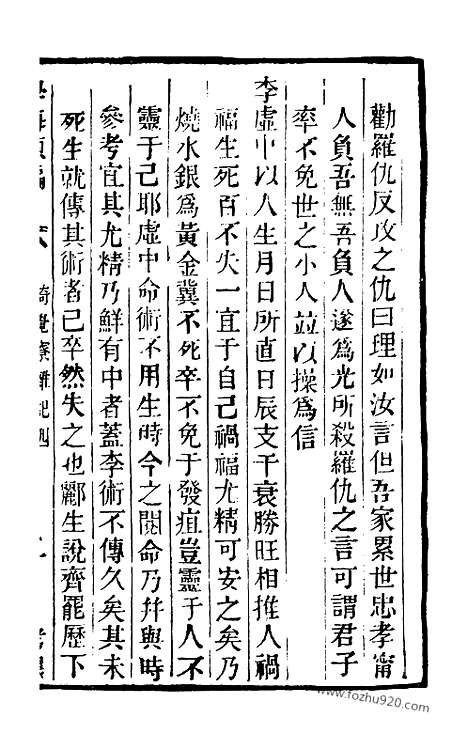 勸羅仇反攻之仇曰理如汝言但吾家累世忠孝甯
人負吾無吾負人遂爲光所殺羅仇之言可謂君子
率不免世之小人並以操爲信
李虛中以人生月日所直日辰支干衰勝旺相推人禍
福生死百不失一直于自己禍福尤精可安之矣乃
燒水銀爲黃金冀不死卒不免于發疽豈靈于人不
靈于己耶虛中命術不用生時今之閱命乃幷與時
參考宜其尤精乃鮮有中者蓋李術不傳久矣其未
死生就傳其術者已卒然失之也酈生說齊罷歷下
猗覺寮雜記四
www.fozhu920.com